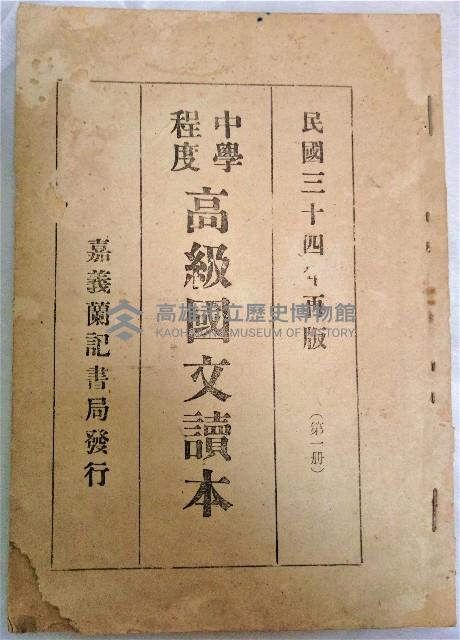 民國三十四年再版
（第一册）
中學程度
高級國文讀本
嘉義蘭記書局發行
高雄市立歷史博物館
KAOHSIUNG MUSEUM OF HISTORY